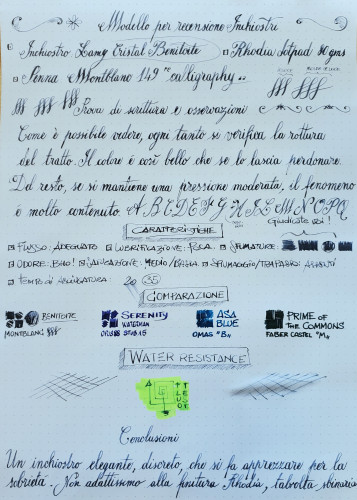 Modello per recensione Inchiostri
Inchiostro Lamy Cristal Benitoite Rhodia Dotpad 80 gms
Penna Montblanc 149 "calligraphy"
Prova di scrittura e osservazioni
Come è possibile vedere, ogni tanto si verifica la rottura
del tratto. Il colore è così bello che se lo lascia perdonare.
Del resto, se si mantiene una pressione moderata, il fenomeno
è molto contenuto. A B C D E F G H I L M N O P Q
Giudicate voi!
CARATTERISTICHE
FLUSSO: ADEGUATO LUBRIFICAZIONE: POCA. SFUMATURE:
ODORE: SATURAZIONE: MEDIO/ SPIUMAGGIO/TRAPASSO: ASSENTI
TEMPO DI ASCIUGATURA: 20 35
COMPARAZIONE
BENITOITE SERENITY ASA PRIME OF
MONTBLANC WATERMAN BLUE THE COMMONS
OMAS "B" FABER CASTEL "M"
WATER RESISTANCE
Conclusioni
Un inchiostro elegante, discreto, che si fa apprezzare per la
sobrietà. Non adattissimo alla finitura Rhodia, talvolta sbinaria